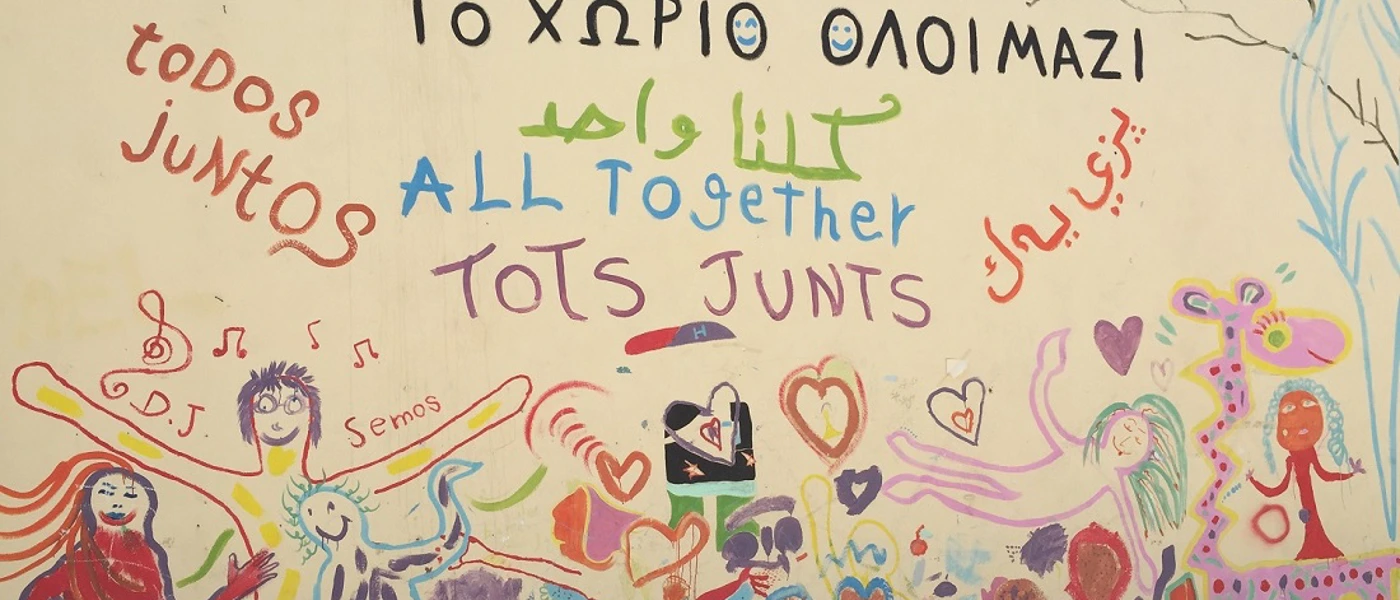 ΤΟ ΧΩΡΙΟ ΟΛΟΙ ΜΑΖΙ
toDOS
juNtOS
كلنا واحد
ALL Together
TOTS JUNTS
H
D.J
Semos